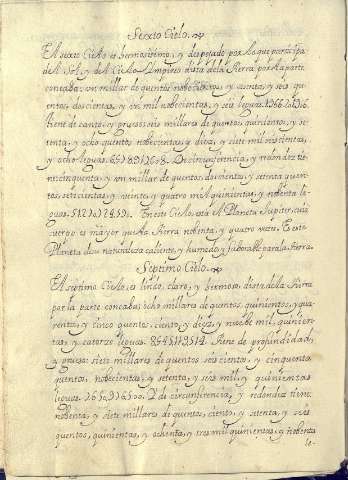 Sexto Cielo.
El sexto Cielo es hermosissimo, y despejado por lo que participa
del Sol, y del Cielo Empireo dista de la tierra por la parte
concaba: un millar de quentos novecientos, y
quentos, docientas, y un mil nobecientas, y seis leguas.
tiene de canto, y grueso: seis millares de quentos, quinientos, y se-
tenta, y ocho quentos, nobecientas, y diez, y siete mil, y seiscientas,
y ocho leguas. De circunferencia, y redondez tie-
ne cinquenta, y un millar de quentos, docientos, y setenta quen-
tos, setecientas, y veinte, y quatro mil quinientas, y nobenta le-
guas. En este Cielo, está el Planeta Jupiter, cuio
cuerpo es maior que la tierra nobenta, y quatro veces. Es este
Planeta de su naturaleza caliente, y humedo, y faborable para la tierra.
Septimo Cielo.
El septimo Cielo, es lindo, claro, y hermoso, dista de la tierra
por la parte concaba: ocho millares de quentos, quinientos, y qua-
renta, y cinco quentos, ciento, y diez, y nuebe mil, quinien-
tas, y catorze leguas. 8545119514. tiene de profundidad,
y grueso: siete millares de quentos seis cientos, y cinquenta
quentos, nobecientas, y setenta, y seis mil, y quinientas
leguas. Y de circunferencia, y redondez tiene:
nobenta, y siete millares de quentos, ciento, y setenta, y seis
quentos, quinientas, y ochenta, y tres mil quinientas, y nobenta
le-